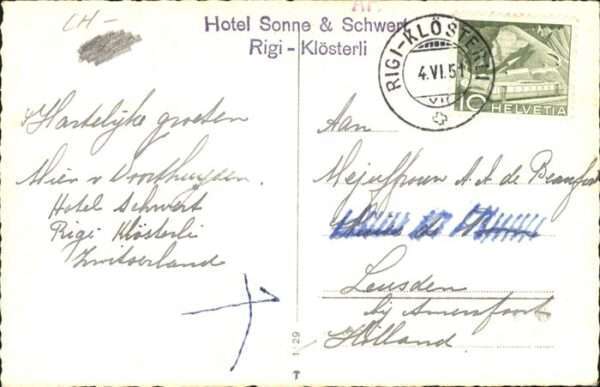 CH-
Hotel Sonne & Schwert
Rigi - Klösterli
RIGI-KLÖSTERLI
4.VI.51
VII
10 HELVETIA
Hartelijke groeten
Mien v Voorthuyzen.
Hotel Schwert
Rigi Klösterli
Zwitserland
Aan
Mejuffrouw A. A. de Beaufort
Leusden
bij Amersfoort
Holland
29